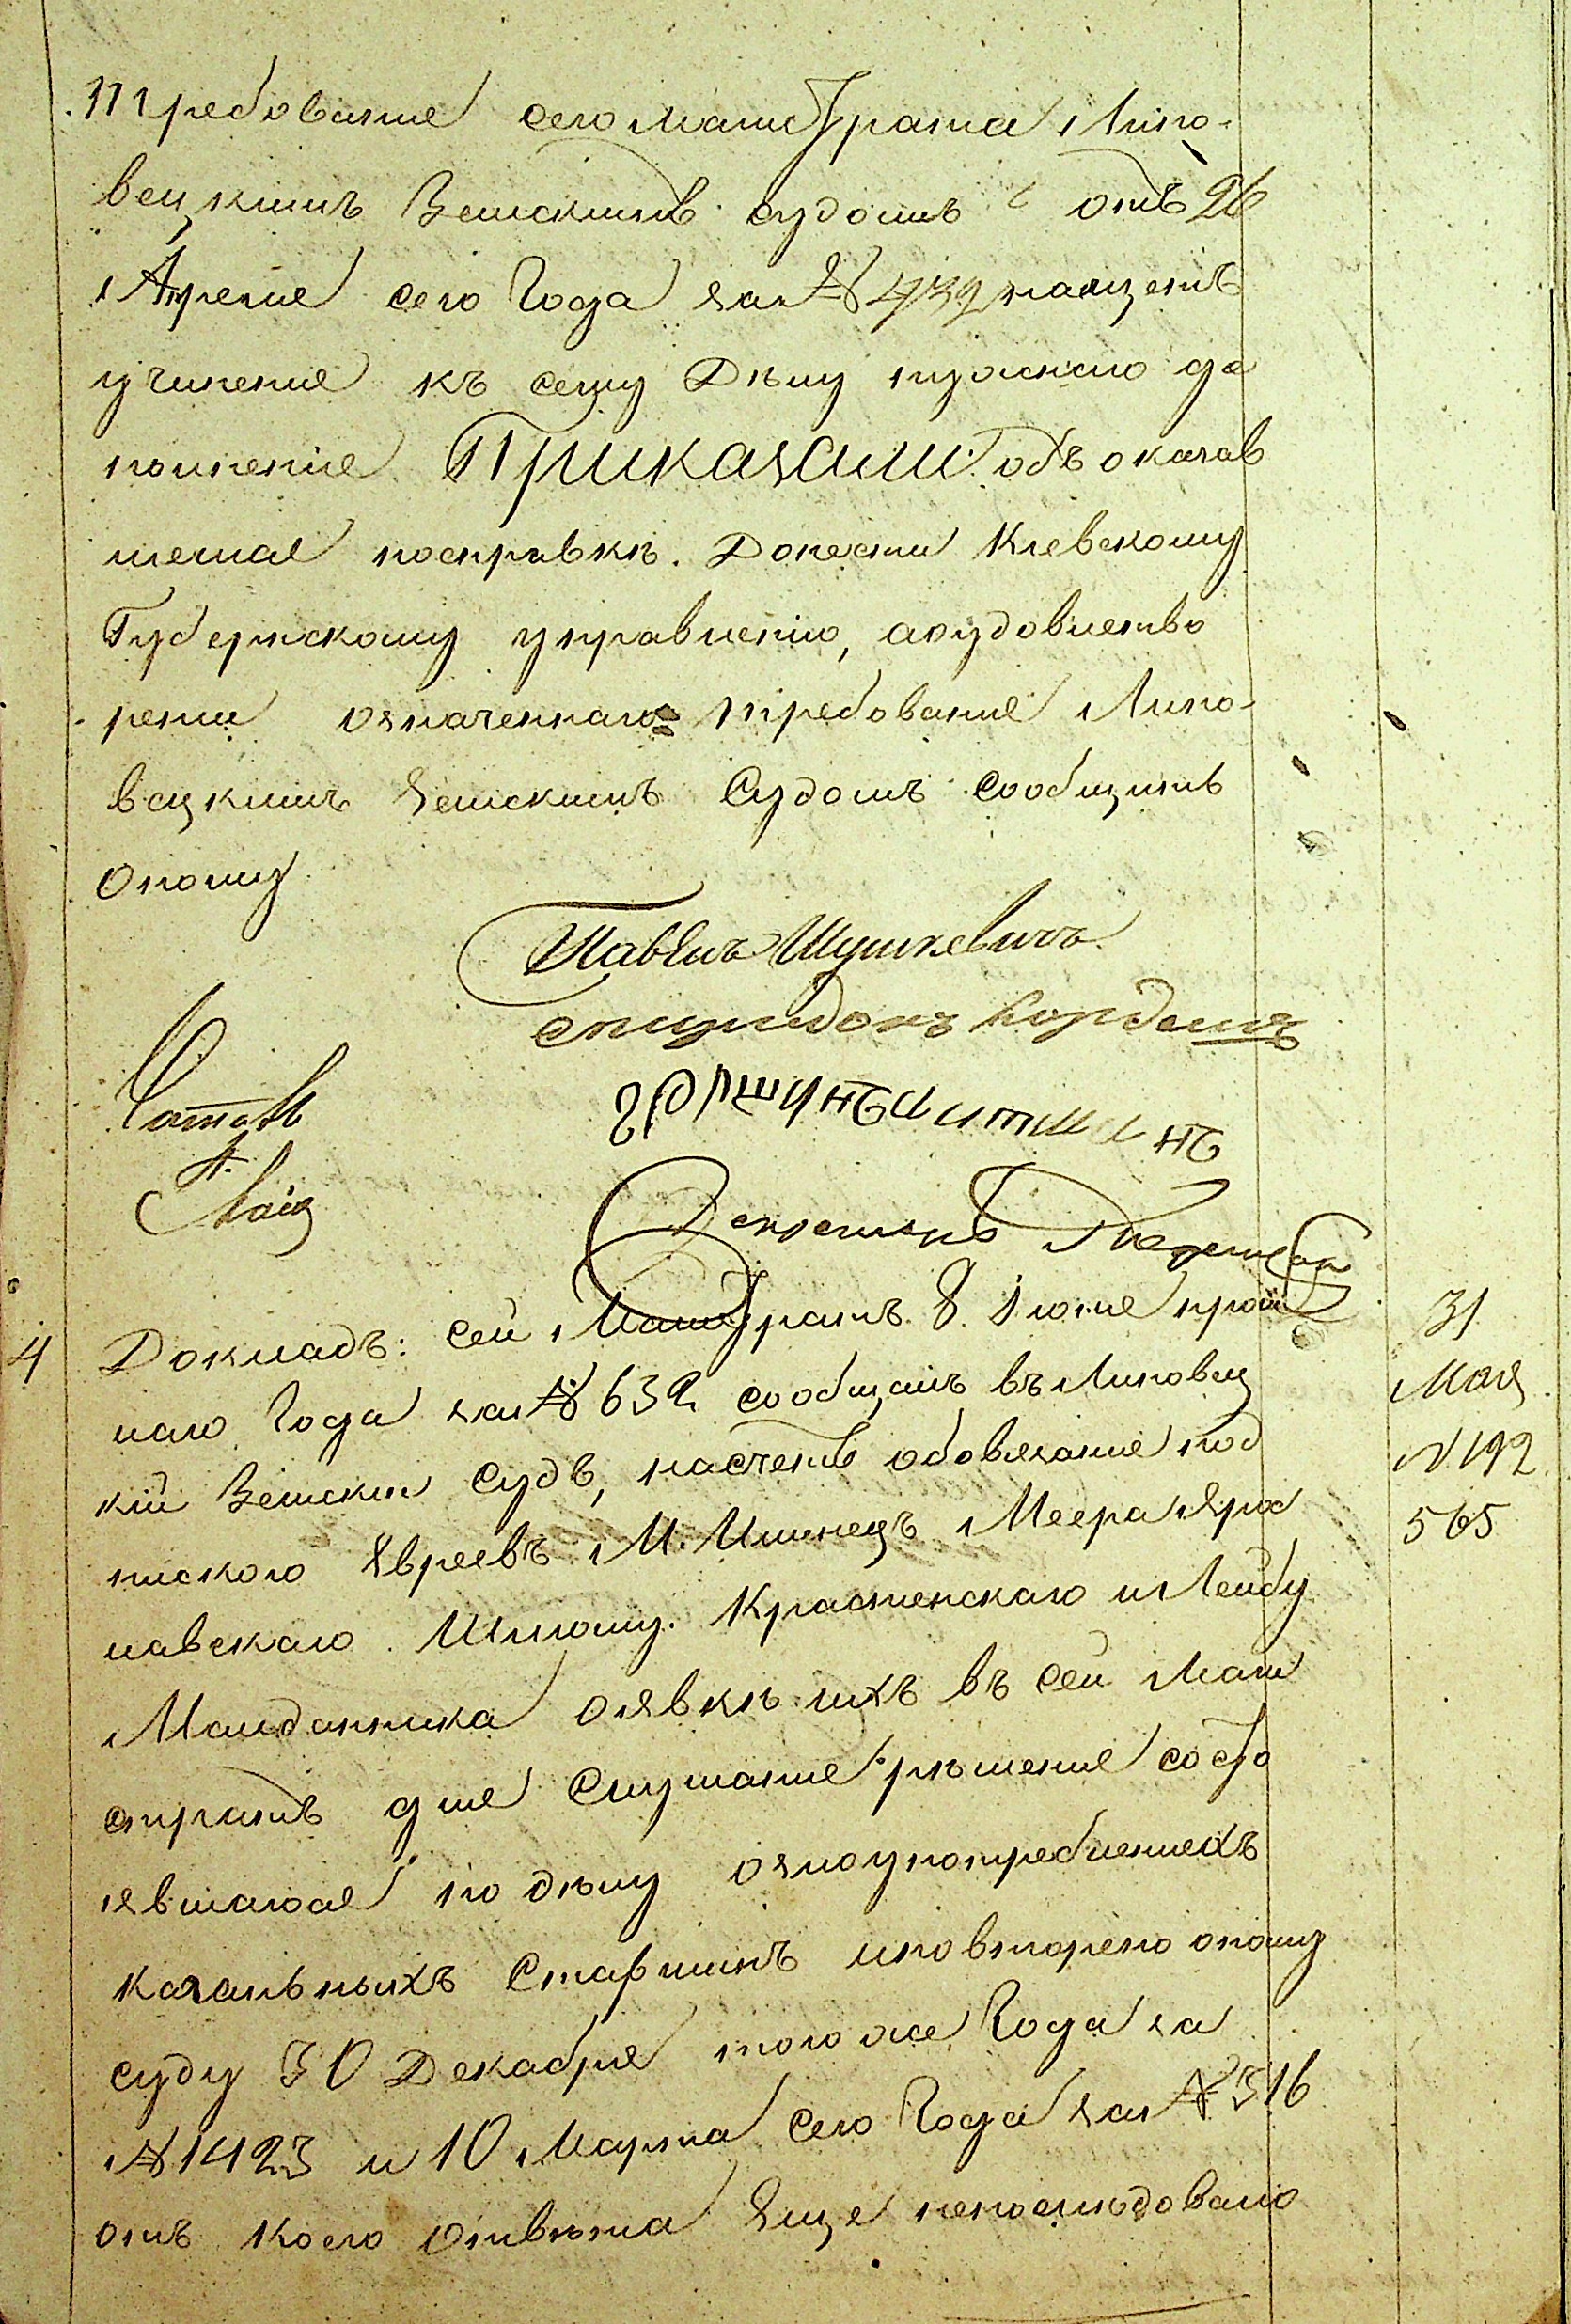 Требованіе сего магистрата Липо-
вецкимъ Земскимъ судомъ отъ 26
Апреля сего Года за № 432 насчетъ
учиненія къ сему Дѣлу нужнаго до
полненія Приказали: объ оказав
шемся посправкѣ. Донести Кіевскому
Губернскому управленію, аоудовлетво
реніи означеннаго требованія Липо-
вецкимъ Земскимъ Судомъ сообщить
Оному
Павелъ
Спиридонъ
Секретарь
4 Докладъ: сей Магистратъ 8. Іюня прош
лаго Года за № 632 сообщалъ въ Липовец
кій Земскій Судъ, насчетъ обовязанія под
пискою Евреевъ М. Илинецъ Меера Яро
шавскаго Шлюму. Красненскаго и Лейбу
Майданника оявкѣ ихъ въ сей Маги
стратъ для Слушанія рѣшенія состо
явшагося по дѣлу озлоупотребленіяхъ
кагальныхъ Старшинъ иповторено оному
суду 30 Декабря того же Года за
№ 1423 и 10 Марта Сего Года за № 316
отъ коего отвѣта Еще непослѣдовало
31
Мая
№ 192
565